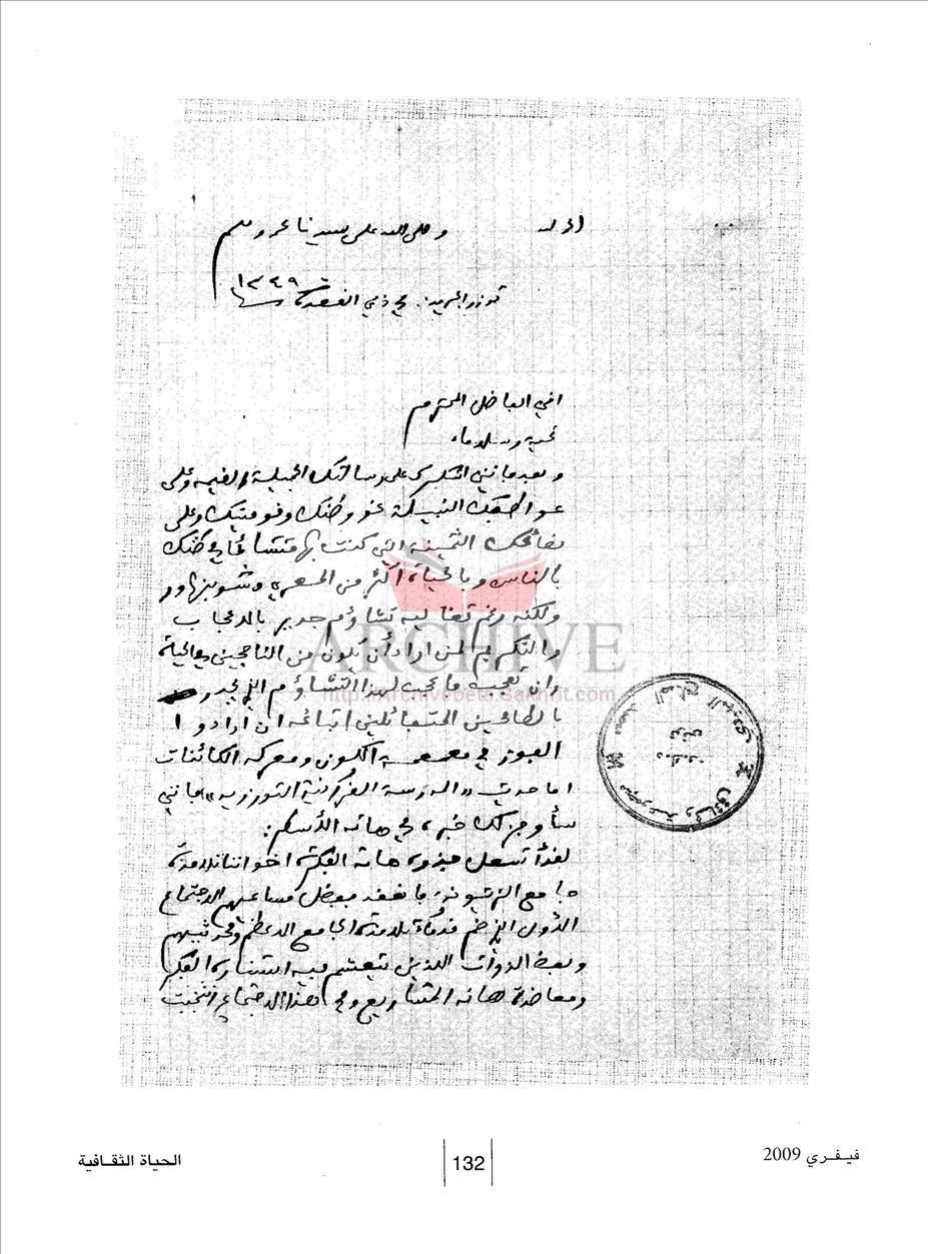 الحمد لله وصلى الله على سيدنا محمد وسلم
توزر الجريد: في ذي القعدة سنة ١٣٤٩
اخي الفاضل المحترم
تحية وسلاما،
وبعد فانني اشكرك على رسالتك الجميلة القيمة وعلى
عواطفك النبيلة نحو وطنك وقوميتك وعلى
نصائحك الثمينة التي كنت بها متشائما في ظنك
بالناس وبالحياة اكثر من المعري وشوبنهاور
ولكنه رغم تشاؤم جدير بالاعجاب
والتكريم لمن اراد أن يكون من الناجحين في الحياة
وان تعجب فاعجب لهذا التشاؤم الذي يجدر
بالطامحين المتفائلين اتباعه ان ارادوا
الفوز في معمعة الكون ومعركة الكائنات
اما حديث «المدرسة القرآنية التوزرية» فانني
سأوجز لك خبره في هاته الأسطر:
لقد أشعل هاته الفكرة اخواننا تلامذة
جامع الزيتونة فانعقد بفضل مساعيهم الاجتماع
الأول الذي ضم قدماء تلامذة الجامع الاعظم ومحدثيهم
وبعض الذوات الذين فيهم الفكر
ومعاضدة هاته المشاريع وفي هذا الاجتماع انتخبت
ARCHIVE
http://Archivebeta.Sakhrit.com
فيفري 2009
132
الحياة الثقافية